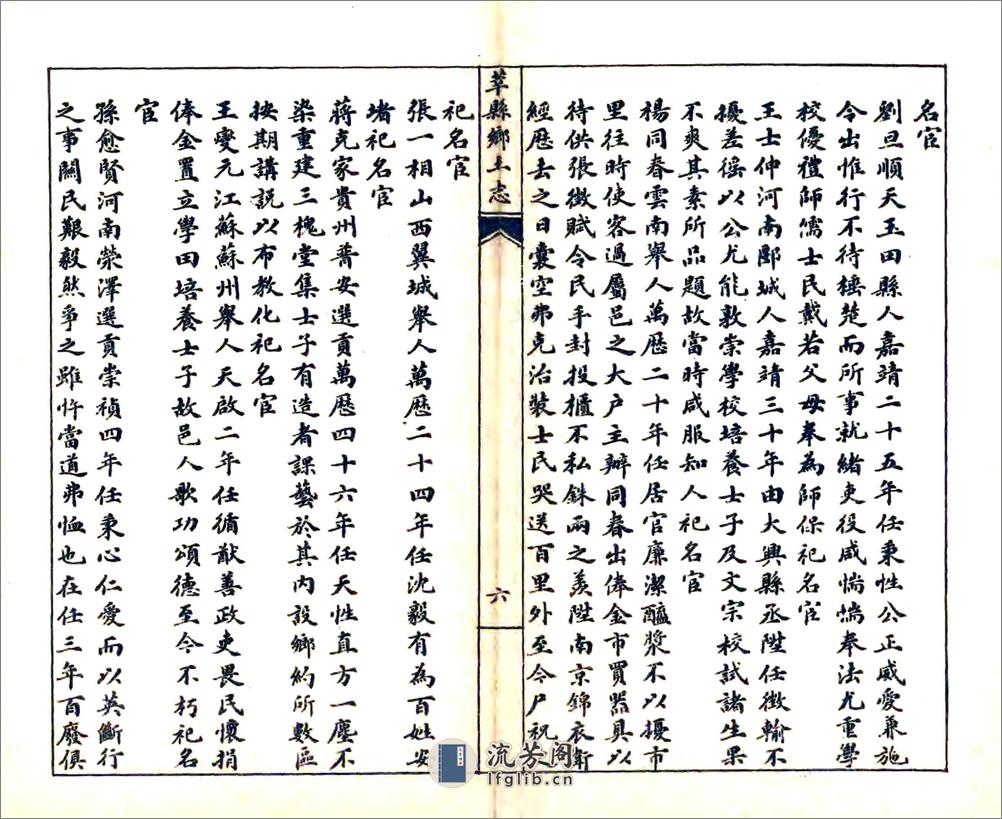 名宦
劉旦順天玉田縣人嘉靖二十五年任秉性公正威愛兼施
令出惟行不待棰楚而所事就緒吏役咸惴惴奉法尤重學
校優禮師儒士民戴若父母奉為師保祀名宦
王士仲河南郾城人嘉靖三十年由大興縣丞陞任徵輸不
擾差徭以公尤能敦崇學校培養士子及文宗校試諸生果
不爽其素所品題故當時咸服知人祀名宦
楊同春雲南舉人萬歷二十年任居官廉潔醯漿不以擾市
里往時使客過屬邑之大戶主辦同春出俸金市買器具以
待供張徵賦令民手封投櫃不私銖兩之羨陞南京錦衣衛
經歷去之日囊空弗克治裝士民哭送百里外至今尸祝
莘縣鄉土志
六
祀名宦
張一相山西翼城舉人萬歷二十四年任沈毅有為百姓安
堵祀名宦
蔣克家貴州普安選貢萬歷四十六年任天性直方一塵不
染重建三槐堂集士子有造者課藝於其內設鄉約所數區
按期講說以布教化祀名宦
王燮元江蘇蘇州舉人天啟二年任循猷善政吏畏民懷捐
俸金置立學田培養士子故邑人歌功頌德至今不朽祀名
宦
孫愈賢河南滎澤選貢崇禎四年任秉心仁愛而以英斷行
之事關民艱毅然爭之雖忤當道弗恤也在任三年百廢俱
流芳阁
lfglib.cn